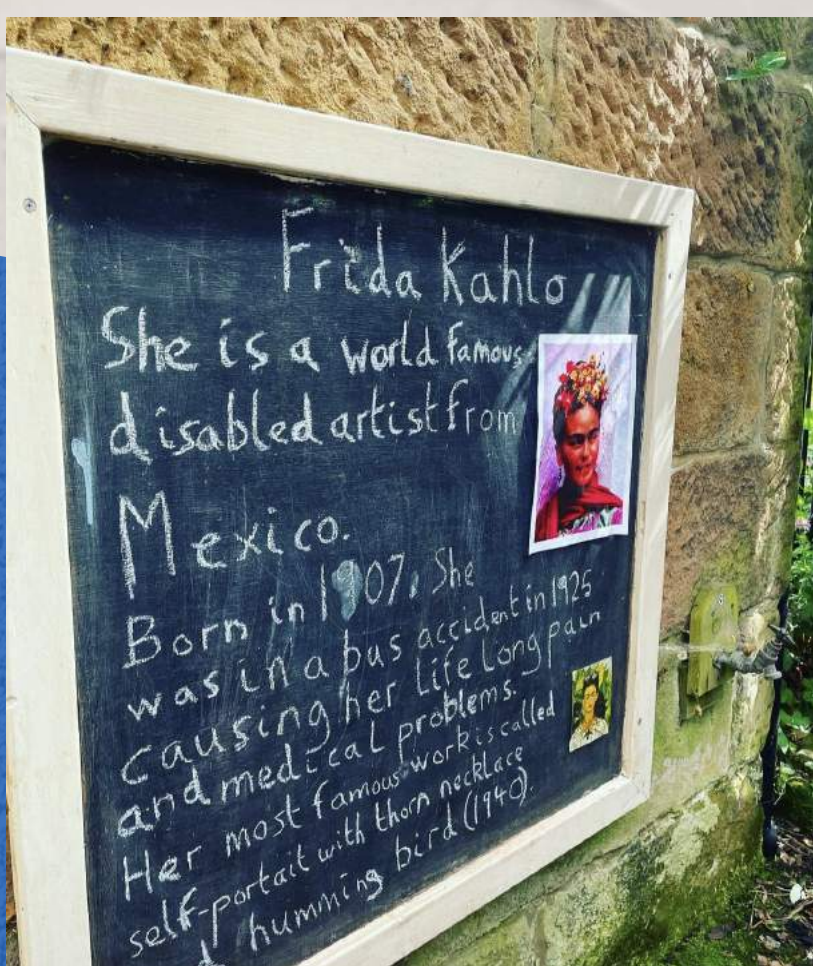 Frida Kahlo
She is a world famous
disabled artist from
Mexico.
Born in 1907. She
was in a bus accident in 1925
causing her life long pain
and medical problems.
Her most famous work is called
self-portait with thorn necklace
humming bird (1940).